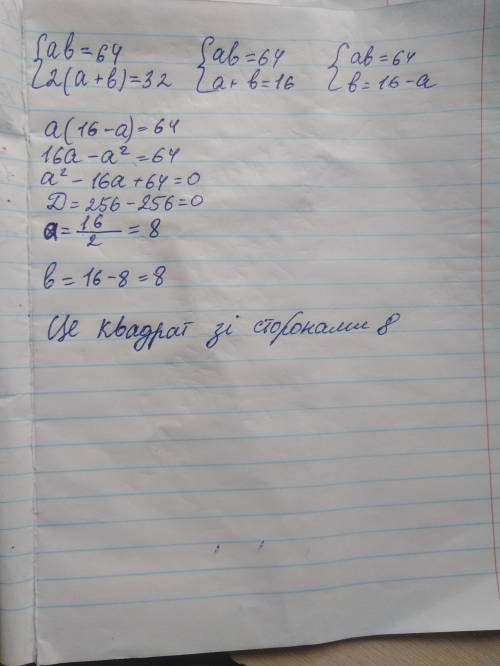 {ab = 64 {ab = 64 {ab = 64
{2(a+b)=32 {a+b=16 {b=16-a
a(16-a)=64
16a-a²=64
a²-16a+64=0
D=256-256=0
a=16/2=8
b=16-8=8
Це квадрат зі сторонами 8